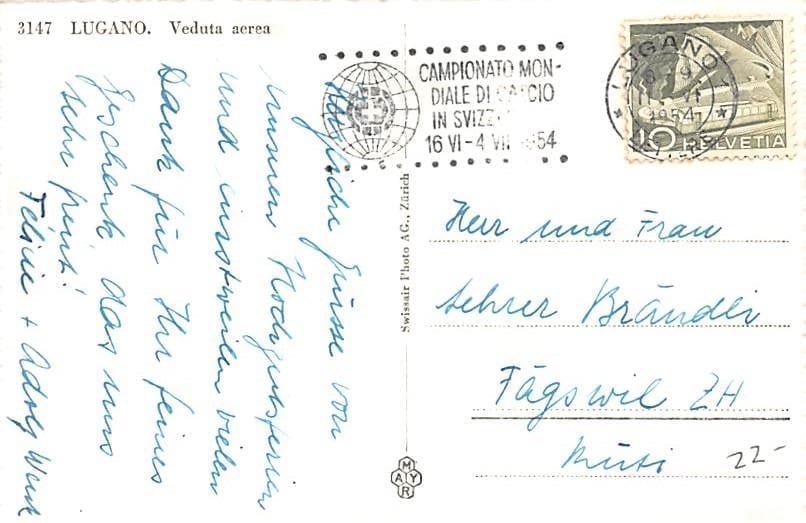 3147 LUGANO. Veduta aerea
Herzliche Grüsse von
unseren Hochzeitsferien
und einstweilen vielen
Dank für Ihr feines
Geschenk das uns
sehr freut!
Felicie + Adolf
CAMPIONATO MON-
DIALE DI CALCIO
IN SVIZZ
16 VI - 4 VII 1954
LUGANO 1
1954
10 HELVETIA
Swissair Photo AG., Zürich
Herr und Frau
Lehrer Brändli
Fägswil ZH
Rüti
22-
MAYR